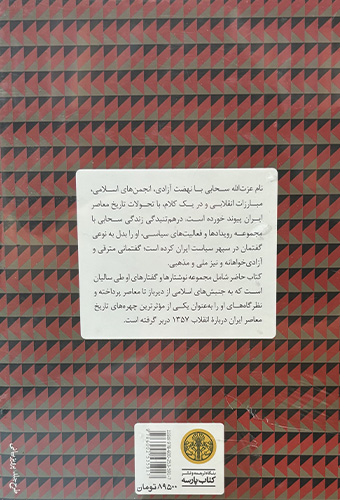 نام عزت‌الله سحابی با نهضت آزادی، انجمن‌های اسلامی،
مبارزات انقلابی و در یک کلام، با تحولات تاریخ معاصر
ایران پیوند خورده است. درهم‌تنیدگی زندگی سحابی با
مجموعه رویدادها و فعالیت‌های سیاسی، او را بدل به نوعی
گفتمان در سپهر سیاست ایران کرده است؛ گفتمانی مترقی و
آزادی‌خواهانه و نیز ملی و مذهبی.
کتاب حاضر شامل مجموعه نوشتارها و گفتارهای او طی سالیان
است که به جنبش‌های اسلامی از دیرباز تا معاصر پرداخته و
نظرگاه‌های او را به‌عنوان یکی از مؤثرترین چهره‌های تاریخ
معاصر ایران دربارهٔ انقلاب ۱۳۵۷ دربر گرفته است.
بنگاه ترجمه و نشر
کتاب پارسه
۸۹۵۰۰ تومان